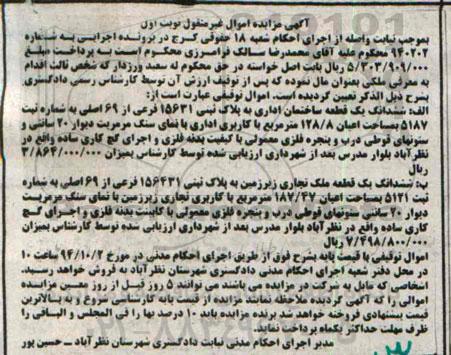 آگهی مزایده اموال غیرمنقول نوبت اول
بموجب نیابت واصله از اجرای احکام شعبه ۱۸ حقوقی کرج در پرونده اجرایی به شماره
۹۴۰۲۰۲ محکوم علیه آقای محمدرضا سالک فرامرزی محکوم است به پرداخت مبلغ
۵/۳۰۳/۹۰۹/۰۰۰ ریال بابت اصل خواسته در حق محکوم له سعید ورزدار که شخص ثالث اقدام
به معرفی ملکی بعنوان مال نموده که پس از توقیف ارزش آن توسط کارشناس رسمی دادگستری
بشرح ذیل الذکر تعیین گردیده است. اموال توقیفی عبارت است از:
الف: ششدانگ یک قطعه ساختمان اداری به پلاک ثبتی ۱۵۶۳۱ فرعی از ۶۹ اصلی به شماره ثبت
۵۱۸۷ بمساحت اعیان ۱۲۸/۸ مترمربع با کاربری اداری با نمای سنگ مرمریت دیوار ۲۰ سانتی و
ستونهای قوطی درب و پنجره فلزی معمولی با کیفیت بدنه فلزی و اجرای گچ کاری ساده واقع در
نظرآباد بلوار مدرس بعد از شهرداری ارزیابی شده توسط کارشناس بمیزان ۳/۸۶۴/۰۰۰/۰۰۰
ریال
ب: ششدانگ یک قطعه ملک تجاری زیرزمین به پلاک ثبتی ۱۵۶۴۳۱ فرعی از ۶۹ اصلی به شماره
ثبت ۵۱۲۱ بمساحت اعیان ۱۸۷/۴۷ مترمربع با کاربری تجاری زیرزمین با نمای سنگ مرمریت
دیوار ۲۰ سانتی ستونهای قوطی درب و پنجره فلزی معمولی با کابینت بدنه فلزی و اجرای گچ
کاری ساده واقع در نظرآباد بلوار مدرس بعد از شهرداری ارزیابی شده توسط کارشناس بمیزان
۷/۴۹۸/۸۰۰/۰۰۰ ریال
اموال توقیفی با قیمت پایه بشرح فوق از طریق اجرای احکام مدنی در مورخ ۹۴/۱۰/۲ ساعت ۱۰
در محل دفتر شعبه اجرای احکام مدنی دادگستری شهرستان نظرآباد به فروش خواهد رسید.
اشخاصی که مایل به شرکت در مزایده می باشند می توانند ۵ روز قبل از روز معین مزایده
اموالی را که آگهی گردیده ملاحظه نمایند مزایده از قیمت پایه کارشناسی شروع و به بالاترین
قیمت پیشنهادی فروخته خواهد شد برنده مزایده باید ۱۰ درصد بها را فی المجلس و الباقی را
ظرف مهلت حداکثر یکماه پرداخت نماید.
مدیر اجرای احکام مدنی نیابت دادگستری شهرستان نظرآباد ــ حسین پور